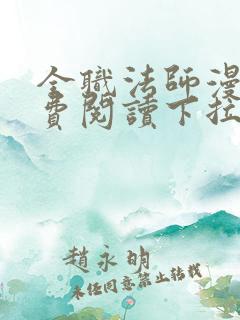 全職法師漫
費閱讀下拉
趙永明
未经同意禁止转载